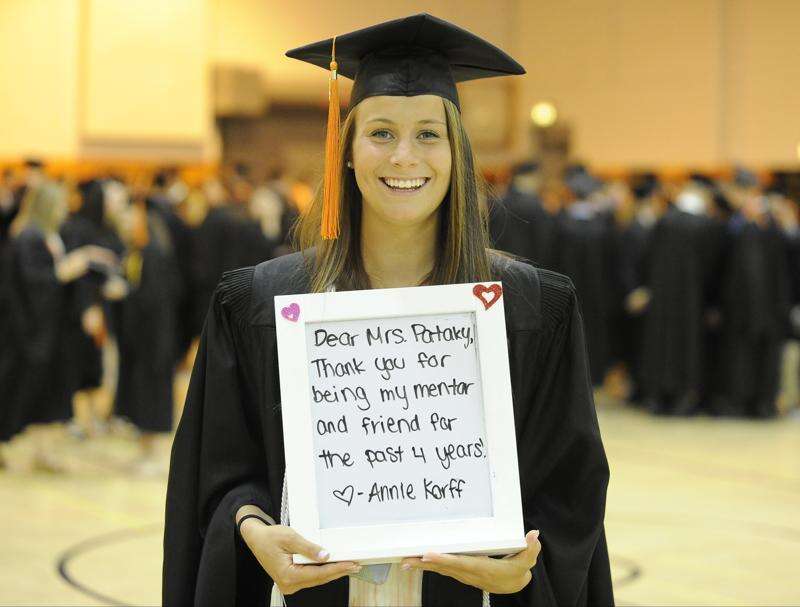 Dear Mrs. Pataky,
Thank you for
being my mentor
and friend for
the past 4 years!
♡-Annie Korff